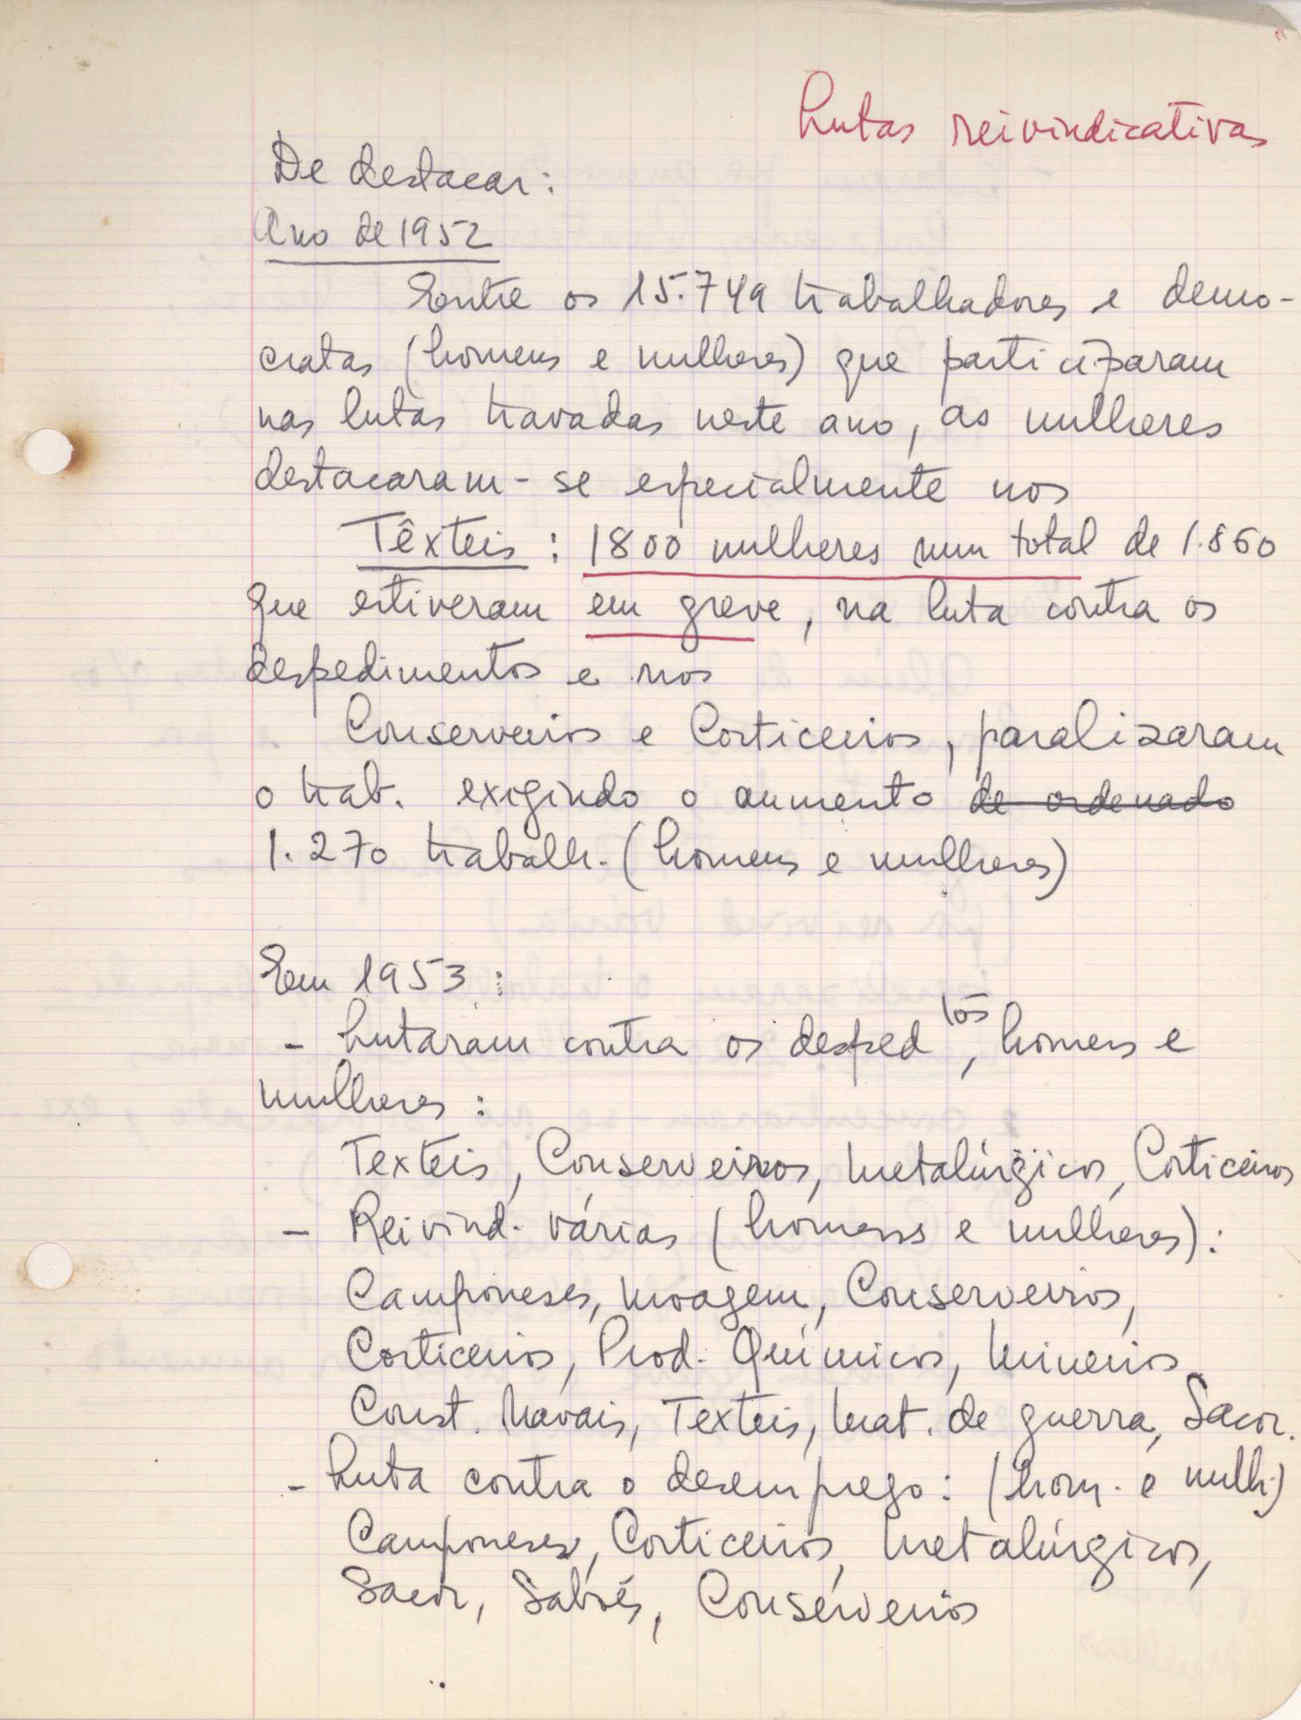 Lutas reivindicativas
De destacar:
Ano de 1952
Entre os 15.749 trabalhadores e demo-
cratas (homens e mulheres) que participaram
nas lutas travadas neste ano, as mulheres
destacaram-se especialmente nos
Têxteis: 1800 mulheres num total de 1.860
que estiveram em greve, na luta contra os
despedimentos e nos
Conserveiros e Corticeiros, paralizaram
o trab. exigindo o aumento de ordenado
1.270 trabalh. (homens e mulheres)
Em 1953:
- Lutaram contra os desped tos, homens e
mulheres:
Texteis, Conserveiros, Metalúrgicos, Corticeiros
- Reivind. várias (homens e mulheres):
Camponeses, Moagem, Conserveiros,
Corticeiros, Prod. Químicos, Mineiros
Const. Navais, Texteis, Mat. de guerra, Sacor.
- Luta contra o desemprego: (hom. e mulh.)
Camponeses, Corticeiros, Metalúrgicos,
Sacor, Sabões, Conserveiros